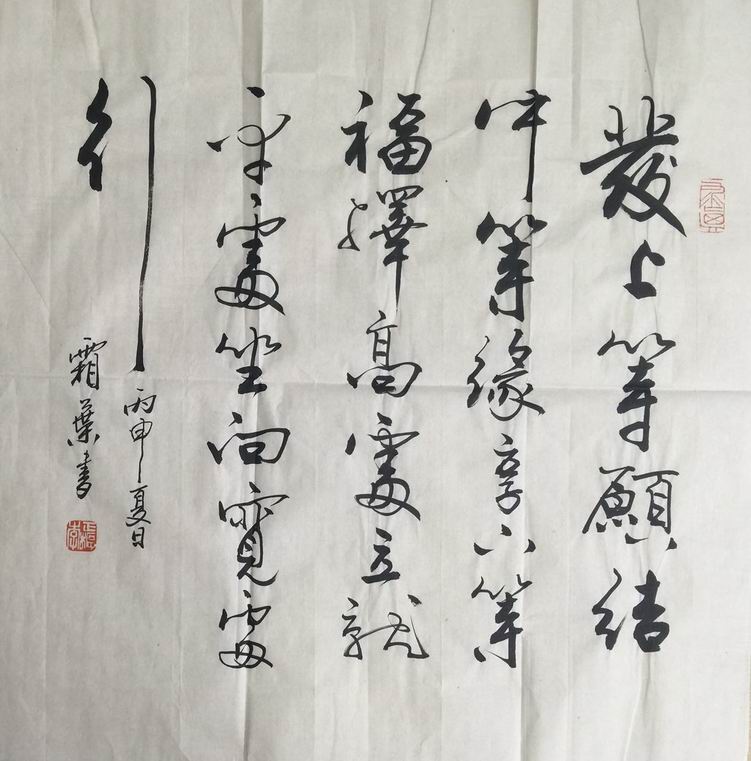 發上等願結
中等緣享下等
福擇高處立就
平處坐向寬處
行
丙申夏日
霜葉書